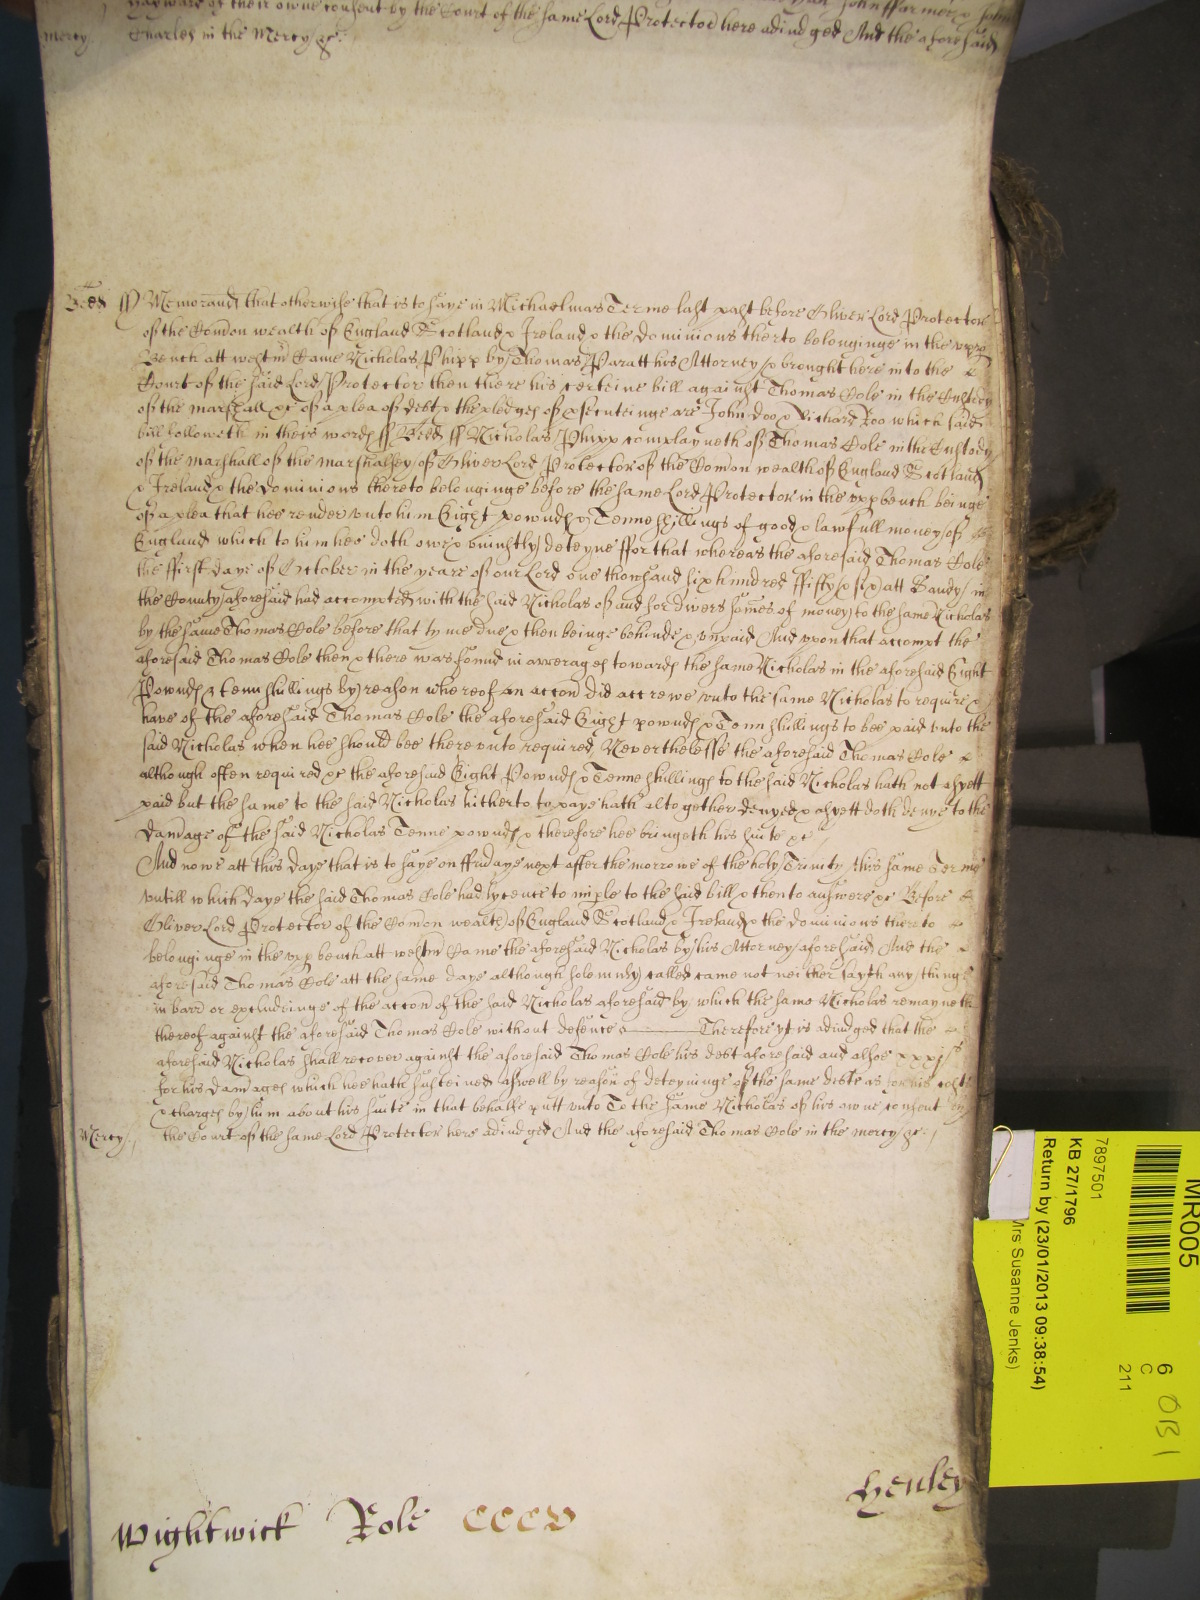 Hayward of their owne consent by the Court of the same Lord Protector here adiudged And the aforesaid
mercy Charles in the Mercy &c
Beds ss Memorand that otherwise that is to saye in Michaelmas Terme last past before Oliver Lord Protector
of the Comon wealth of England Scotland & Ireland & the dominions therto belonginge in the upp
Bench att westm Came Nicholas Phipp by Thomas Paratt his Attorney & brought here into the
Court of the said Lord Protector then there his certeine bill against Thomas Cole in the Custody
of the marshall &c of a plea of debt & the pledges of psecuteinge are John Doo & Richard Roo which said
bill followeth in theis words ss Beds ss Nicholas Phipp complayneth of Thomas Cole in the Custody
of the marshall of the marshalsey of Oliver Lord Protector of the Comon wealth of England Scotland
& Ireland & the dominions thereto belonginge before the same Lord Protector in the upp bench beinge
of a plea that hee render unto him Eight pownds & Tenne shillings of good & lawfull money of
England which to him hee doth owe & uniustly deteyne ffor that whereas the aforesaid Thomas Cole
the ffirst daye of October in the yeare of our Lord one thowsand six hundred ffiffty & six att Sandy in
the County aforesaid had accompted with the said Nicholas of and for divers somes of money to the same Nicholas
by the same Thomas Cole before that tyme due & then beinge behinde & unpaid And upon that accompt the
aforesaid Thomas Cole then & there was found in arrerages towards the same Nicholas in the aforesaid Eight
Pownds & tenn shillings by reason whereof an accon did accrewe unto the same Nicholas to require &
have of the aforesaid Thomas Cole the aforesaid Eight pownds & Tenn shillings to bee paid unto the
said Nicholas when hee should bee thereunto required Neverthelesse the aforesaid Thomas Cole
although often required &c the aforesaid Eight Pownds & Tenne shillings to the said Nicholas hath not as yett
paid but the same to the said Nicholas hitherto to paye hath altogether denyed & as yett doth denye to the
damage of the said Nicholas Tenne pownds & therefore hee bringeth his suite &c
And nowe att this daye that is to saye on ffridaye next after the morrowe of the holy Trinity this same Terme
untill which daye the said Thomas Cole had lycence to imple to the said bill & then to answere &c Before
Oliver Lord Protector of the Comon wealth of England Scotland & Ireland & the dominions thereto
belonginge in the upp bench att westm Came the aforesaid Nicholas by his Attorney aforesaid And the
aforesaid Thomas Cole att the same daye although solemnly called came not neither sayth any thinge
in barr or excludeinge of the accon of the said Nicholas aforesaid by which the same Nicholas remayneth
thereof against the aforesaid Thomas Cole without defence Therefore yt is adiudged that the
aforesaid Nicholas shall recover against the aforesaid Thomas Cole his debt aforesaid and alsoe xxxj s
for his damages which hee hath susteined aswell by reason of deteyninge of the same debte as for his costs
& charges by him about his suite in that behalfe putt unto To the same Nicholas of his owne consent by
Mercy the Court of the same Lord Protector here adiudged And the aforesaid Thomas Cole in the mercy &c
Henley
Wightwick Role CCCV
MR005
7897501
KB 27/1796
Return by (23/01/2013 09:38:54)
Mrs Susanne Jenks)
6
C
211
OB1